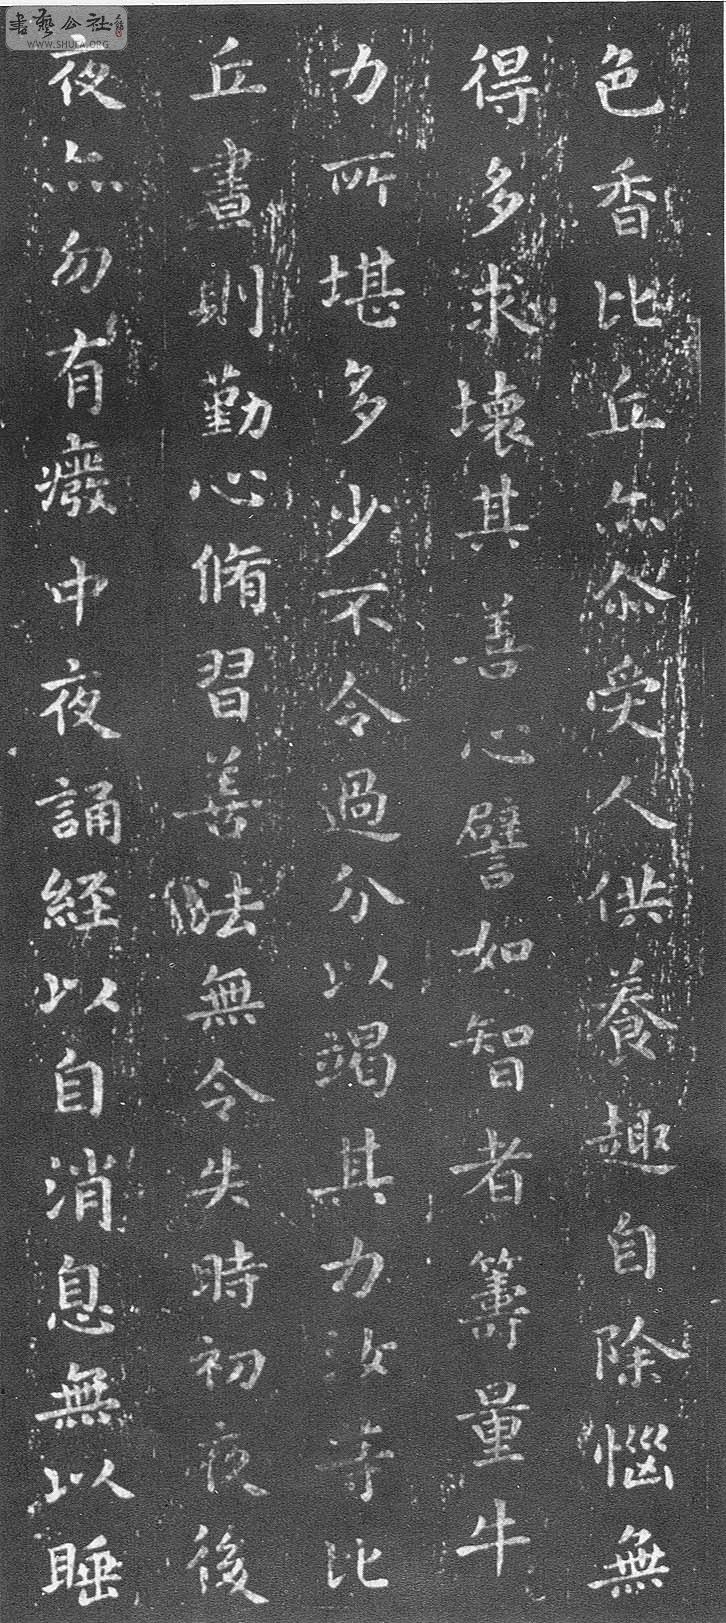 書藝公社
WWW.SHUFA.ORG
色香比丘亦尒受人供養趣自除惱無
得多求壞其善心譬如智者籌量牛
力所堪多少不令過分以竭其力汝等比
丘晝則勤心脩習善法無令失時初夜後
夜亦勿有癈中夜誦経以自消息無以睡